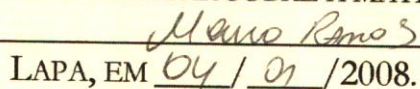 Mario Ramos
LAPA, EM 04 / 01 /2008.